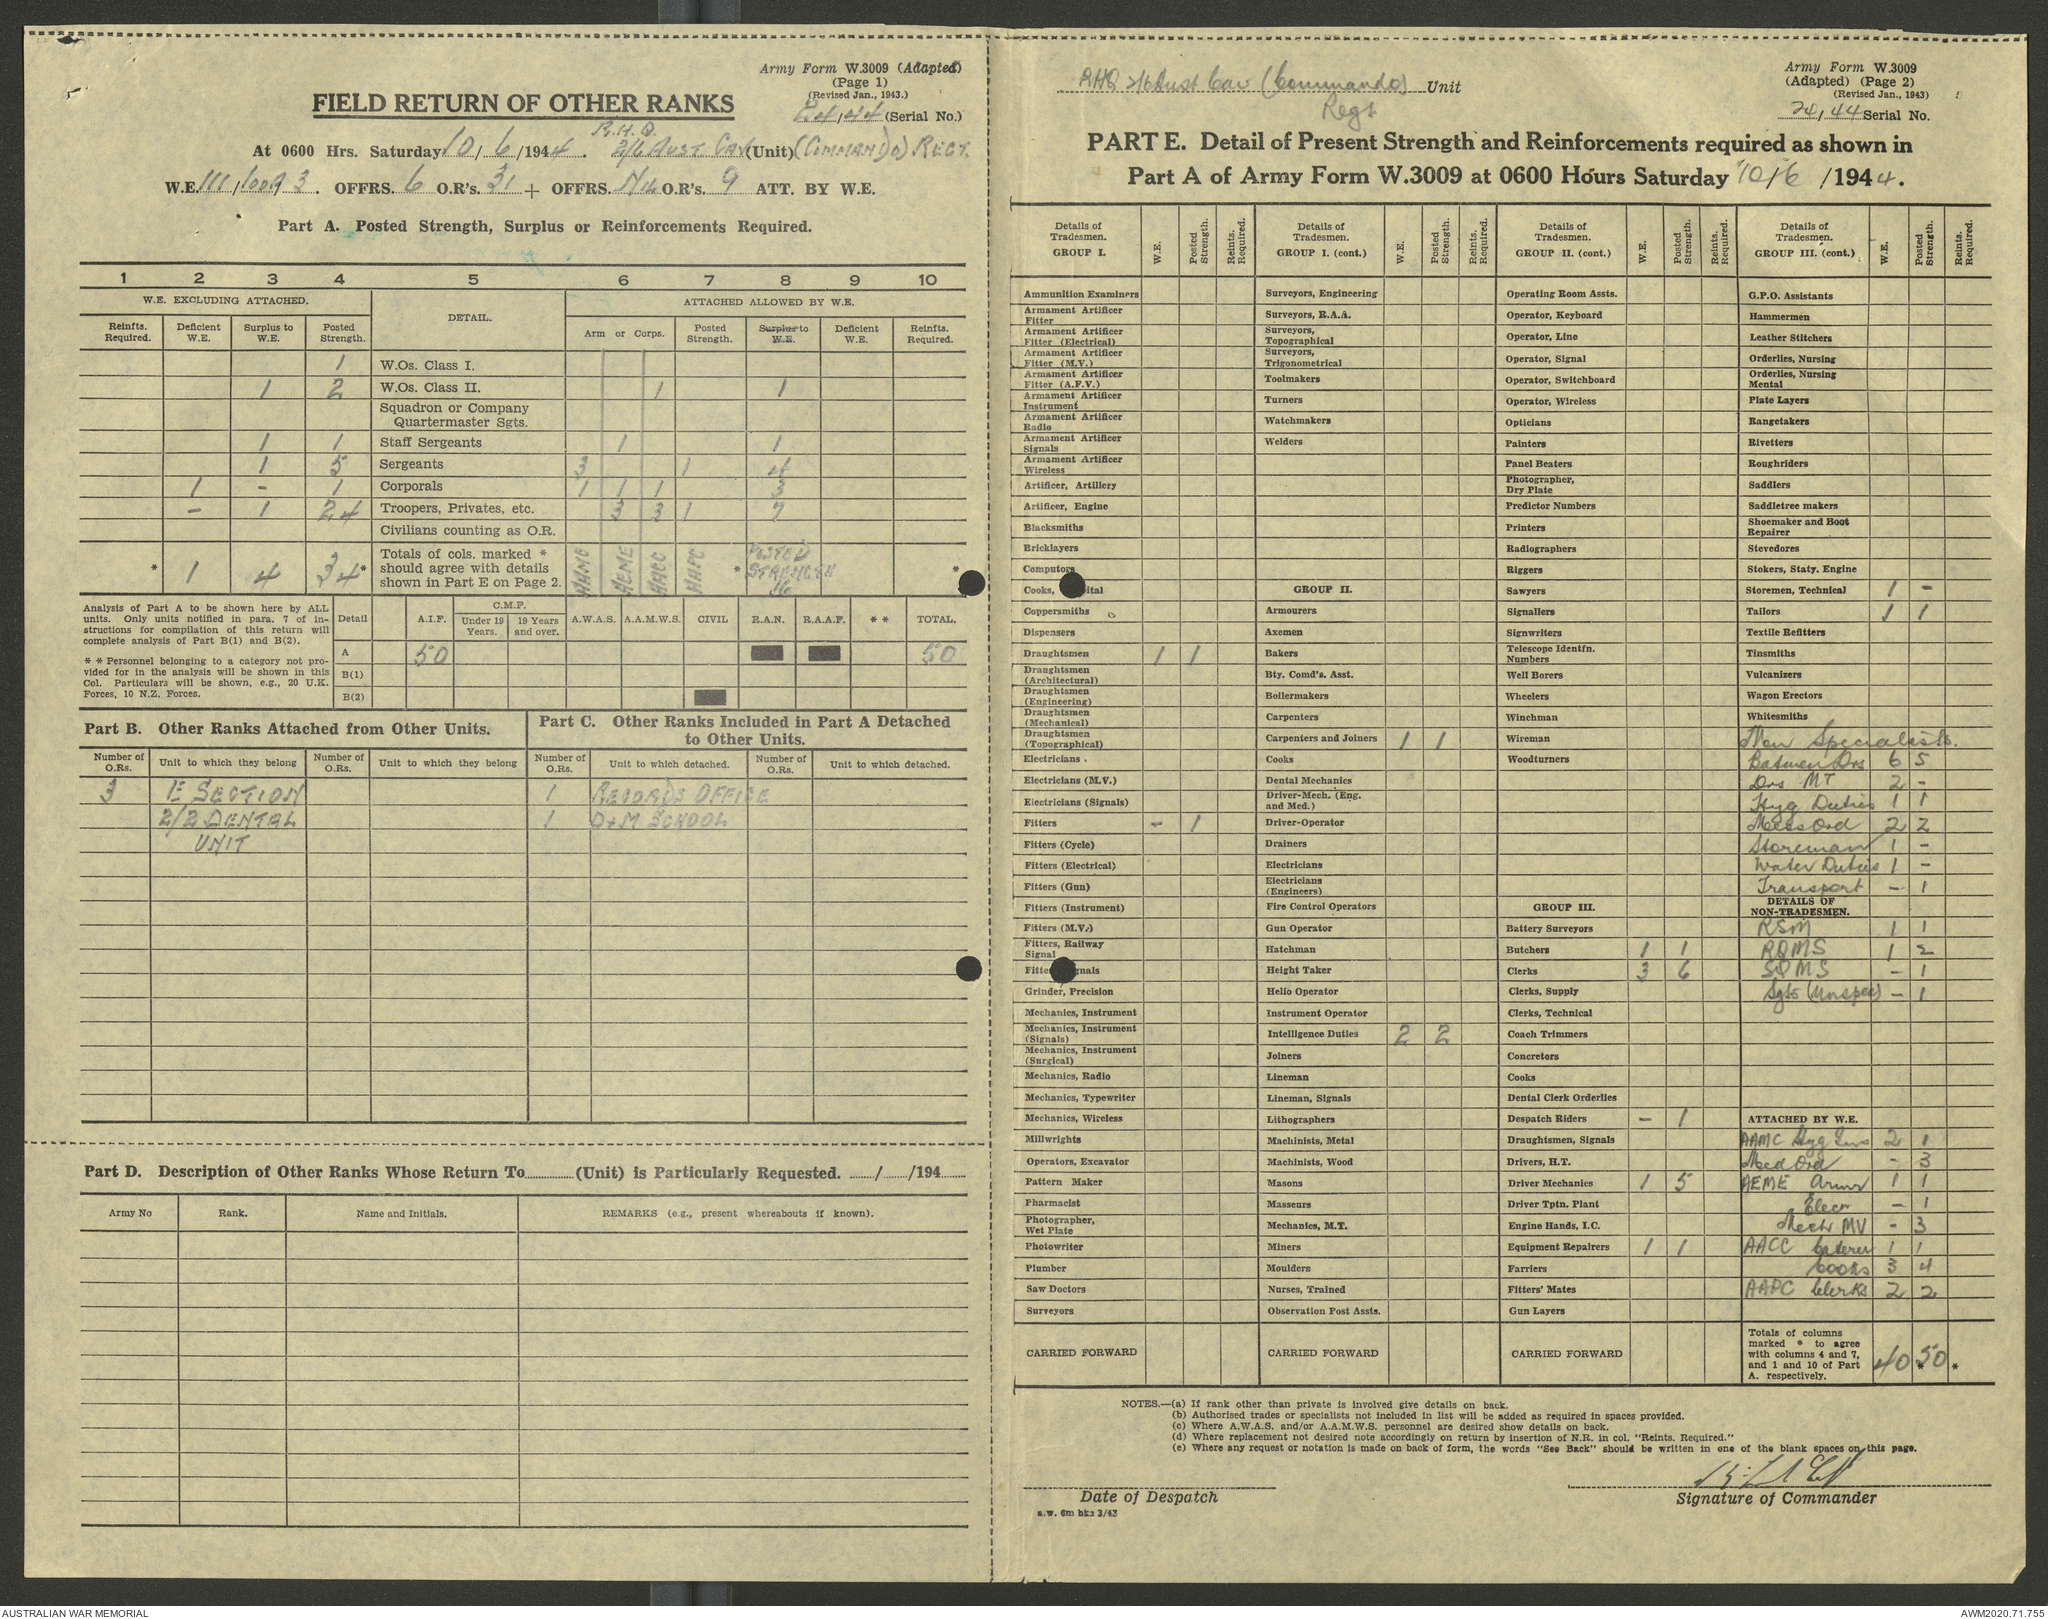 Army Form W.3009 (Adapted)
(Page 1)
(Revised Jan., 1943.)
FIELD RETURN OF OTHER RANKS
24/44 (Serial No.)
R.H.Q.
At 0600 Hrs. Saturday 10/6/1944. 2/6 AUST CAV (Unit) (COMMANDO) REGT.
W.E. III/1009 3. OFFRS. 6 O.R's. 31 + OFFRS. Nil O.R's. 9 ATT. BY W.E.
Part A. Posted Strength, Surplus or Reinforcements Required.
1 2 3 4 5 6 7 8 9 10
W.E. EXCLUDING ATTACHED. DETAIL. ATTACHED ALLOWED BY W.E.
Reinfts. Required. Deficient W.E. Surplus to W.E. Posted Strength. Arm or Corps. Posted Strength. Surplus to W.E. Deficient W.E. Reinfts. Required.
1 W.Os. Class I.
1 2 W.Os. Class II. 1 1
Squadron or Company
Quartermaster Sgts.
1 1 Staff Sergeants 1 1
1 5 Sergeants 3 1 4
1 - 1 Corporals 1 1 1 3
- 1 24 Troopers, Privates, etc. 3 3 1 7
Civilians counting as O.R.
* 1 4 34* Totals of cols. marked * should agree with details shown in Part E on Page 2. AAMC AEME AACC AAPC * POSTED STRENGTH 16 *
Analysis of Part A to be shown here by ALL units. Only units notified in para. 7 of instructions for compilation of this return will complete analysis of Part B(1) and B(2).
* * Personnel belonging to a category not provided for in the analysis will be shown in this Col. Particulars will be shown, e.g., 20 U.K. Forces, 10 N.Z. Forces.
Detail A.I.F. C.M.F. Under 19 Years. 19 Years and over. A.W.A.S. A.A.M.W.S. CIVIL R.A.N. R.A.A.F. * * TOTAL.
A 50 50
B(1)
B(2)
Part B. Other Ranks Attached from Other Units.
Part C. Other Ranks Included in Part A Detached to Other Units.
Number of O.Rs. Unit to which they belong Number of O.Rs. Unit to which they belong Number of O.Rs. Unit to which detached. Number of O.Rs. Unit to which detached.
3 1E SECTION 1 RECORDS OFFICE
2/2 DENTAL 1 D+M SCHOOL
UNIT
Part D. Description of Other Ranks Whose Return To............(Unit) is Particularly Requested. ....../....../194......
Army No Rank. Name and Initials. REMARKS (e.g., present whereabouts if known).
RHQ 2/6 Aust Cav (Commando) Unit
Regt
Army Form W.3009
(Adapted) (Page 2)
(Revised Jan., 1943)
24/44 Serial No.
PART E. Detail of Present Strength and Reinforcements required as shown in
Part A of Army Form W.3009 at 0600 Hours Saturday 10/6/1944.
Details of Tradesmen. GROUP I. W.E. Posted Strength. Reints. Required.
Ammunition Examiners
Armament Artificer Fitter
Armament Artificer Fitter (Electrical)
Armament Artificer Fitter (M.V.)
Armament Artificer Fitter (A.F.V.)
Armament Artificer Instrument
Armament Artificer Radio
Armament Artificer Signals
Armament Artificer Wireless
Artificer, Artillery
Artificer, Engine
Blacksmiths
Bricklayers
Computors
Cooks,
Coppersmiths
Dispensers
Draughtsmen 1 1
Draughtsmen (Architectural)
Draughtsmen (Engineering)
Draughtsmen (Mechanical)
Draughtsmen (Topographical)
Electricians
Electricians (M.V.)
Electricians (Signals)
Fitters - 1
Fitters (Cycle)
Fitters (Electrical)
Fitters (Gun)
Fitters (Instrument)
Fitters (M.V.)
Fitters, Railway Signal
Grinder, Precision
Mechanics, Instrument
Mechanics, Instrument (Signals)
Mechanics, Instrument (Surgical)
Mechanics, Radio
Mechanics, Typewriter
Mechanics, Wireless
Millwrights
Operators, Excavator
Pattern Maker
Pharmacist
Photographer, Wet Plate
Photowriter
Plumber
Saw Doctors
Surveyors
CARRIED FORWARD
Details of Tradesmen. GROUP I. (cont.) W.E. Posted Strength. Reints. Required.
Surveyors, Engineering
Surveyors, R.A.A.
Surveyors, Topographical
Surveyors, Trigonometrical
Toolmakers
Turners
Watchmakers
Welders
GROUP II.
Armourers
Axemen
Bakers
Bty. Comd's. Asst.
Boilermakers
Carpenters
Carpenters and Joiners 1 1
Cooks
Dental Mechanics
Driver-Mech. (Eng. and Med.)
Driver-Operator
Drainers
Electricians
Electricians (Engineers)
Fire Control Operators
Gun Operator
Hatchman
Height Taker
Helio Operator
Instrument Operator
Intelligence Duties 2 2
Joiners
Lineman
Lineman, Signals
Lithographers
Machinists, Metal
Machinists, Wood
Masons
Masseurs
Mechanics, M.T.
Miners
Moulders
Nurses, Trained
Observation Post Assts.
CARRIED FORWARD
Details of Tradesmen. GROUP II. (cont.) W.E. Posted Strength. Reints. Required.
Operating Room Assts.
Operator, Keyboard
Operator, Line
Operator, Signal
Operator, Switchboard
Operator, Wireless
Opticians
Painters
Panel Beaters
Photographer, Dry Plate
Predictor Numbers
Printers
Radiographers
Riggers
Sawyers
Signallers
Signwriters
Telescope Identfn. Numbers
Well Borers
Wheelers
Winchman
Wireman
Woodturners
GROUP III.
Battery Surveyors
Butchers 1 1
Clerks 3 6
Clerks, Supply
Clerks, Technical
Coach Trimmers
Concretors
Cooks
Dental Clerk Orderlies
Despatch Riders - 1
Draughtsmen, Signals
Drivers, H.T.
Driver Mechanics 1 5
Driver Tptn. Plant
Engine Hands, I.C.
Equipment Repairers 1 1
Farriers
Fitters' Mates
Gun Layers
CARRIED FORWARD
Details of Tradesmen. GROUP III. (cont.) W.E. Posted Strength. Reints. Required.
G.P.O. Assistants
Hammermen
Leather Stitchers
Orderlies, Nursing
Orderlies, Nursing Mental
Plate Layers
Rangetakers
Rivetters
Roughriders
Saddlers
Saddletree makers
Shoemaker and Boot Repairer
Stevedores
Stokers, Staty. Engine
Storemen, Technical 1 -
Tailors 1 1
Textile Refitters
Tinsmiths
Vulcanizers
Wagon Erectors
Whitesmiths
Non Specialists.
Batmen Drs 6 5
Drs MT 2 -
Hyg Duties 1 1
Mess Ord 2 2
Storeman 1 -
Water Duties 1 -
Transport - 1
DETAILS OF NON-TRADESMEN.
RSM 1 1
RQMS 1 2
SQMS - 1
Sgts (Unspec) - 1
ATTACHED BY W.E.
AAMC Hyg 2 1
Med Ord - 3
AEME Armr 1 1
Elecn - 1
Mech MV - 3
AACC Caterer 1 1
Cooks 3 4
AAPC Clerks 2 2
Totals of columns marked * to agree with columns 4 and 7, and 1 and 10 of Part A. respectively. 40 50 * *
NOTES.—(a) If rank other than private is involved give details on back.
(b) Authorised trades or specialists not included in list will be added as required in spaces provided.
(c) Where A.W.A.S. and/or A.A.M.W.S. personnel are desired show details on back.
(d) Where replacement not desired note accordingly on return by insertion of N.R. in col. "Reints. Required."
(e) Where any request or notation is made on back of form, the words "See Back" should be written in one of the blank spaces on this page.
Date of Despatch
Signature of Commander
a.w. 6m bks 3/43
AUSTRALIAN WAR MEMORIAL
AWM2020.71.755